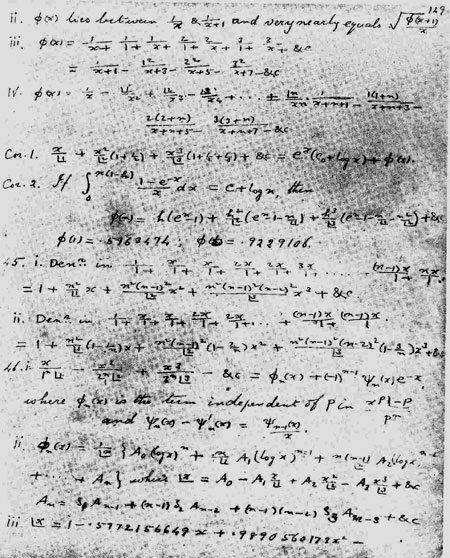 129
ii. φ(x) lies between 1/x & 1/(x+1) and very nearly equals √(φ(x+1)/x)
iii. φ(x) = 1/x+ 1/1+ 1/x+ 2/1+ 2/x+ 3/1+ 3/x+ &c
= 1/(x+1 - 1²/(x+3 - 2²/(x+5 - 3²/(x+7 - &c
IV. φ(x) = 1/x -
2(2+n)/(x+n+5 - 3(3+n)/(x+n+7 - &c
Cor. 1. x/|1 + x²/|2 (1+½) + x³/|3 (1+½+⅓) + &c = eˣ(c₀+log x) + φ(x).
Cor. 2. If ∫ (1-e⁻ˣ)/x dx = C + log x, then
φ(1) = .5963474 ; .9229106.
45. i. Denʳ in 1/1+ x/1+ x/1+ 2x/1+ 2x/1+ 3x/1+ ..... (n-1)x/1+ nx/1
= 1 + n²/|1 x + n²(n-1)²/|2 x² + n²(n-1)²(n-2)²/|3 x³ + &c.
ii. Denʳ in 1/1+ x/1+ x/1+ 2x/1+ 2x/1+ ... (n-1)x/1+ (n-1)x/1
= 1 + n²/|1 (1-1/n)x + n²(n-1)²/|2 (1-2/n)x² + n²(n-1)²(n-2)²/|3 (1-3/n)x³ + &c
46. i. x/1ⁿ|1 - x²/2ⁿ|2 + x³/3ⁿ|3 - &c = φₙ(x) + (-1)ⁿ⁻¹ ψₙ(x)e⁻ˣ,
where φₙ(x) is the term independent of p in xᵖ|-p/pⁿ
and ψₙ(x) - ψₙ'(x) = ψₙ₋₁(x)/x.
ii. φₙ(x) = 1/|n {A₀(log x)ⁿ + n/|1 A₁(log x)ⁿ⁻¹ + n(n-1)/|2 A₂(log x)ⁿ⁻²
+ .... + Aₙ} where |x = A₀ - A₁ x/|1 + A₂ x²/|2 - A₃ x³/|3 + &c
Aₙ = S₁Aₙ₋₁ + (n-1)S₂Aₙ₋₂ + (n-1)(n-2)S₃Aₙ₋₃ + &c
iii |x = 1 - .5772156649x + .9890560173x² -